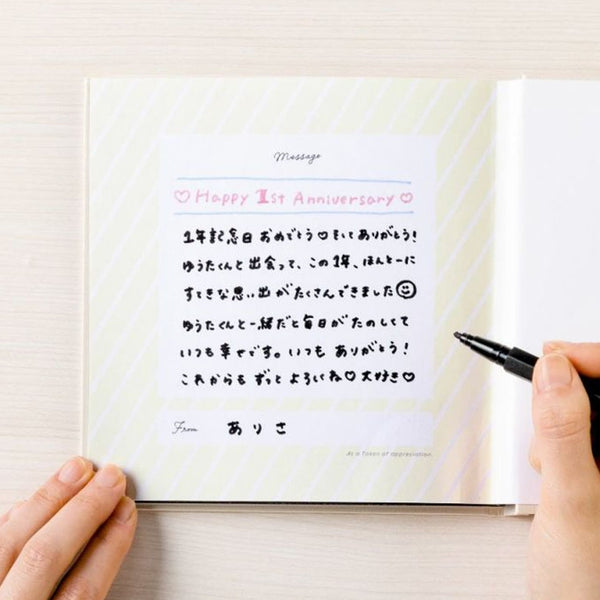 Message
♡ Happy 1st Anniversary ♡
1年記念日 おめでとう♡そしてありがとう！
ゆうたくんと出会って、この1年、ほんとーに
すてきな思い出がたくさんできました☺
ゆうたくんと一緒だと毎日がたのしくて
いつも幸せです。いつも ありがとう！
これからも ずっと よろしくね♡大好き♡
From ありさ
As a Token of appreciation.